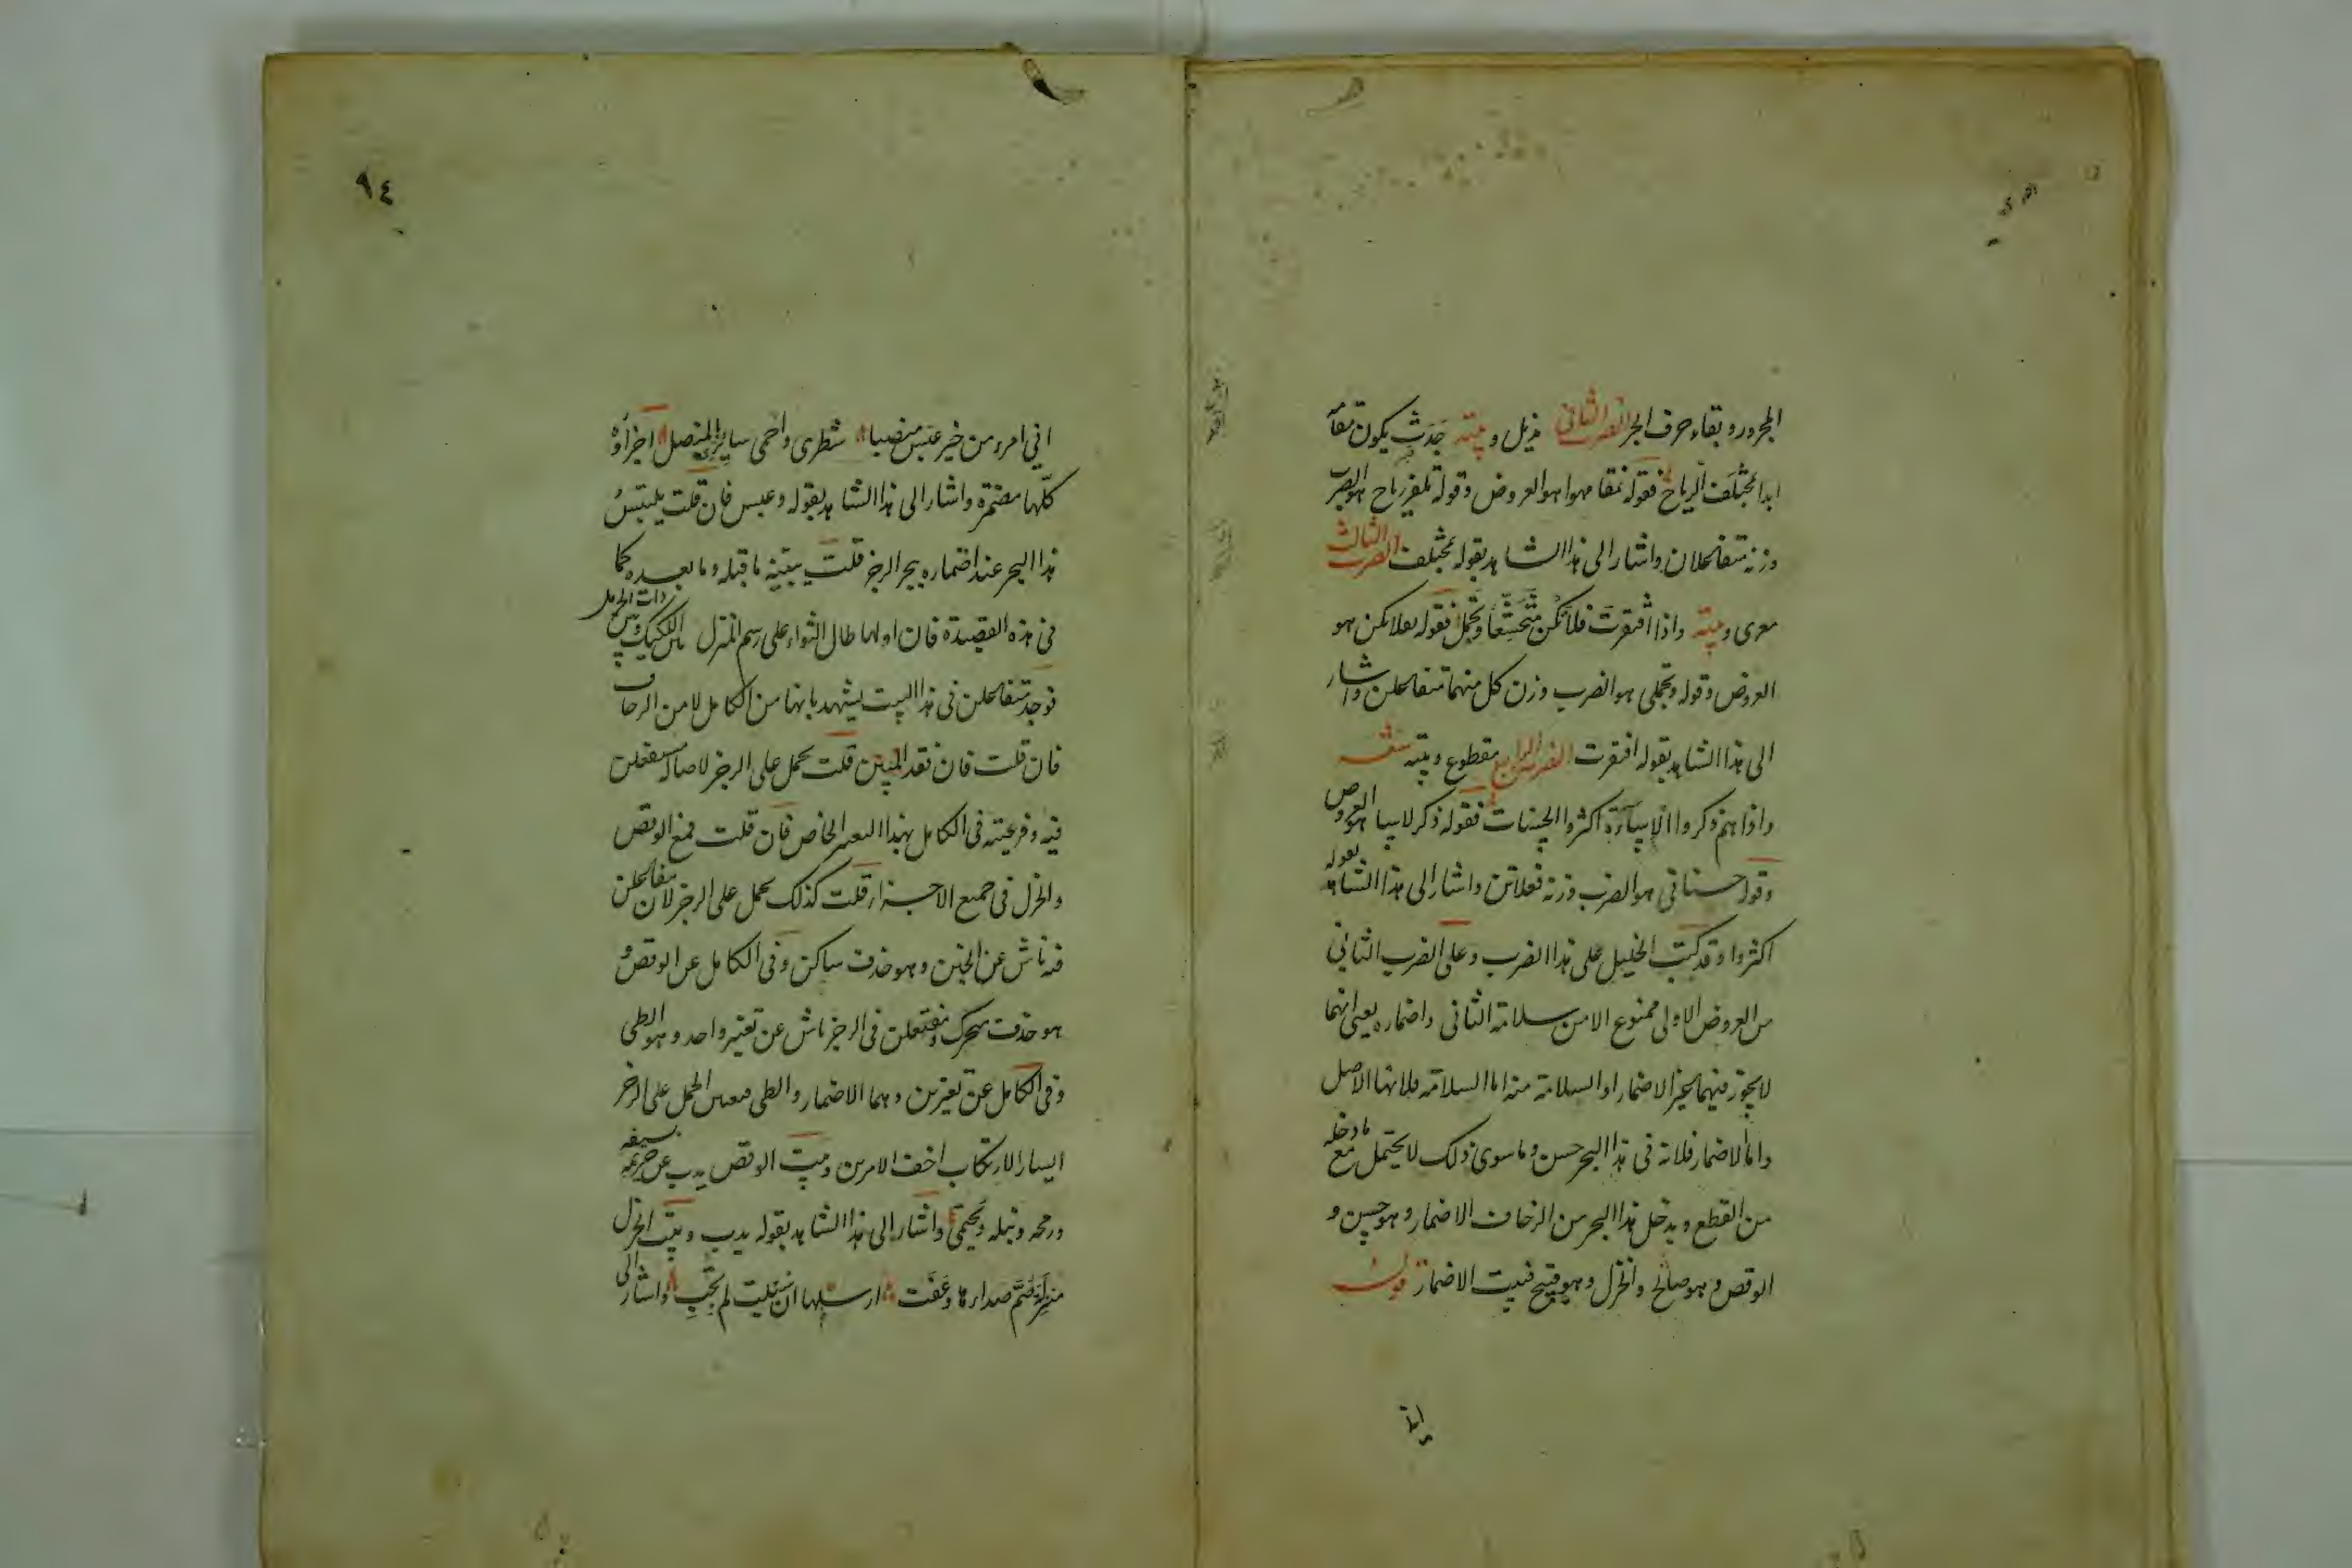 المجرور وبقاء حرف الجر الضرب الثاني مذيل وبيته جَدَثٌ يكون مقامه
ابدا بمختلف الرياح فقوله نمقامهوا هو العروض وقوله تلفر رياح هو الضرب
وزنه متفاعلان واشار الى هذا الشاهد بقوله بمختلف الضرب الثالث
معرى وبيته واذا افتقرت فلا تكن متخشعا وتجمل فقوله تفلا تكن هو
العروض وقوله وتجملى هو الضرب وزن كل منهما متفاعلن واشار
الى هذا الشاهد بقوله افتقرت الضرب الرابع مقطوع وبيته شعر
واذا هم ذكروا الاساءة اكثروا الحسنات فقوله ذكر لاسا هو العروض
وقوله حسناتى هو الضرب وزنه فعلاتن واشار الى هذا الشاهد بقوله
اكثروا وقد كتب الخليل على هذا الضرب وعلى الضرب الثاني
من العروض الاولى ممنوع الا من سلامة الثاني واضماره يعني انهما
لا يجوز فيهما غير الاضمار او السلامة منه اما السلامة فلانها الاصل
واما الاضمار فلانه في هذا البحر حسن وما سوى ذلك لا يحتمل مع ما دخله
من القطع ويدخل هذا البحر من الزحاف الاضمار وهو حسن و
الوقص وهو صالح والخزل وهو قبيح فبيت الاضمار قوله
اني
٩٤
اني امرء من خير عبس منصبا شطرى واحمى سايرى بالمنصل اجزاؤه
كلها مضمرة واشار الى هذا الشاهد بقوله وعبس فان قلت يلتبس
هذا البحر عند اضماره ببحر الرجز قلت يبينه ما قبله وما بعده كما
في هذه القصيدة فان اولها طال الثواء على رسم المنزل بين اللكيك وبين ذات الحرمل
فوجد متفاعلن في هذا البيت يشهد بانها من الكامل لا من الزحاف
فان قلت فان فقد المبين قلت يحمل على الرجز لاصالة مستفعلن
فيه وفرعيته في الكامل بهذا التغير الخاص فان قلت فمع الوقص
والخزل في جميع الاجزاء قلت كذلك يحمل على الرجز لان مفاعلن
فيه ناش عن الخبن وهو حذف ساكن وفي الكامل عن الوقص و
هو حذف متحرك ومفتعلن في الرجز ناش عن تغير واحد وهو الطي
وفي الكامل عن تغيرين وهما الاضمار والطي فيتعين الحمل على الرجز
ايثارا لارتكاب اخف الامرين وبيت الوقص يذب عن حريمه بسيفه
ورمحه ونبله ويحتمي واشار الى هذا الشاهد بقوله يذب وبيت الخزل
منزلة صم صداها وعفت ارسمها ان سئلت لم تجب واشار الى